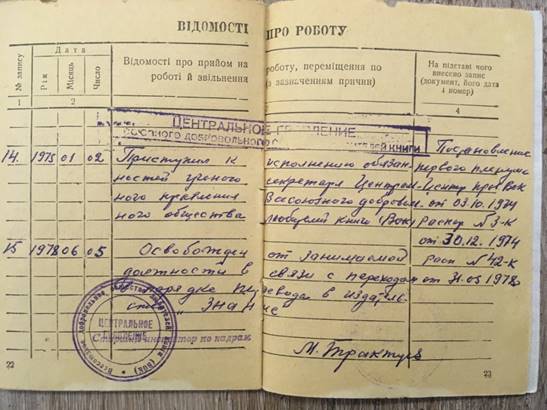 ВІДОМОСТІ ПРО РОБОТУ
№ запису
Дата
Рік
Місяць
Число
Відомості про прийом на роботу, переміщення по
роботі й звільнення (із зазначенням причин)
На підставі чого
внесено запис
(документ, його дата
і номер)
1 2 3 4
ЦЕНТРАЛЬНОЕ ПРАВЛЕНИЕ
ДОБРОВОЛЬНОГО КНИГИ
14. 1975 01 02 Приступил к исполнению обязан-
ностей ученого секретаря Централь-
ного правления Всесоюзного добровол
ного общества любителей книги (ВОК)
Постановление
первого пленума
Центр прав ВОК
от 03.10.1974
Распор № 3-К
от 30.12.1974
15 1978 06 05 Освобожден от занимаемой
должности в связи с переходом
в порядке перевода в издатель-
ство "Знание
Расп № 42-К
от 31.05.1978
Старший инспектор по кадрам
ЦЕНТРАЛЬНОЕ
ПРАВЛЕНИЕ
(ВОК)
22
23